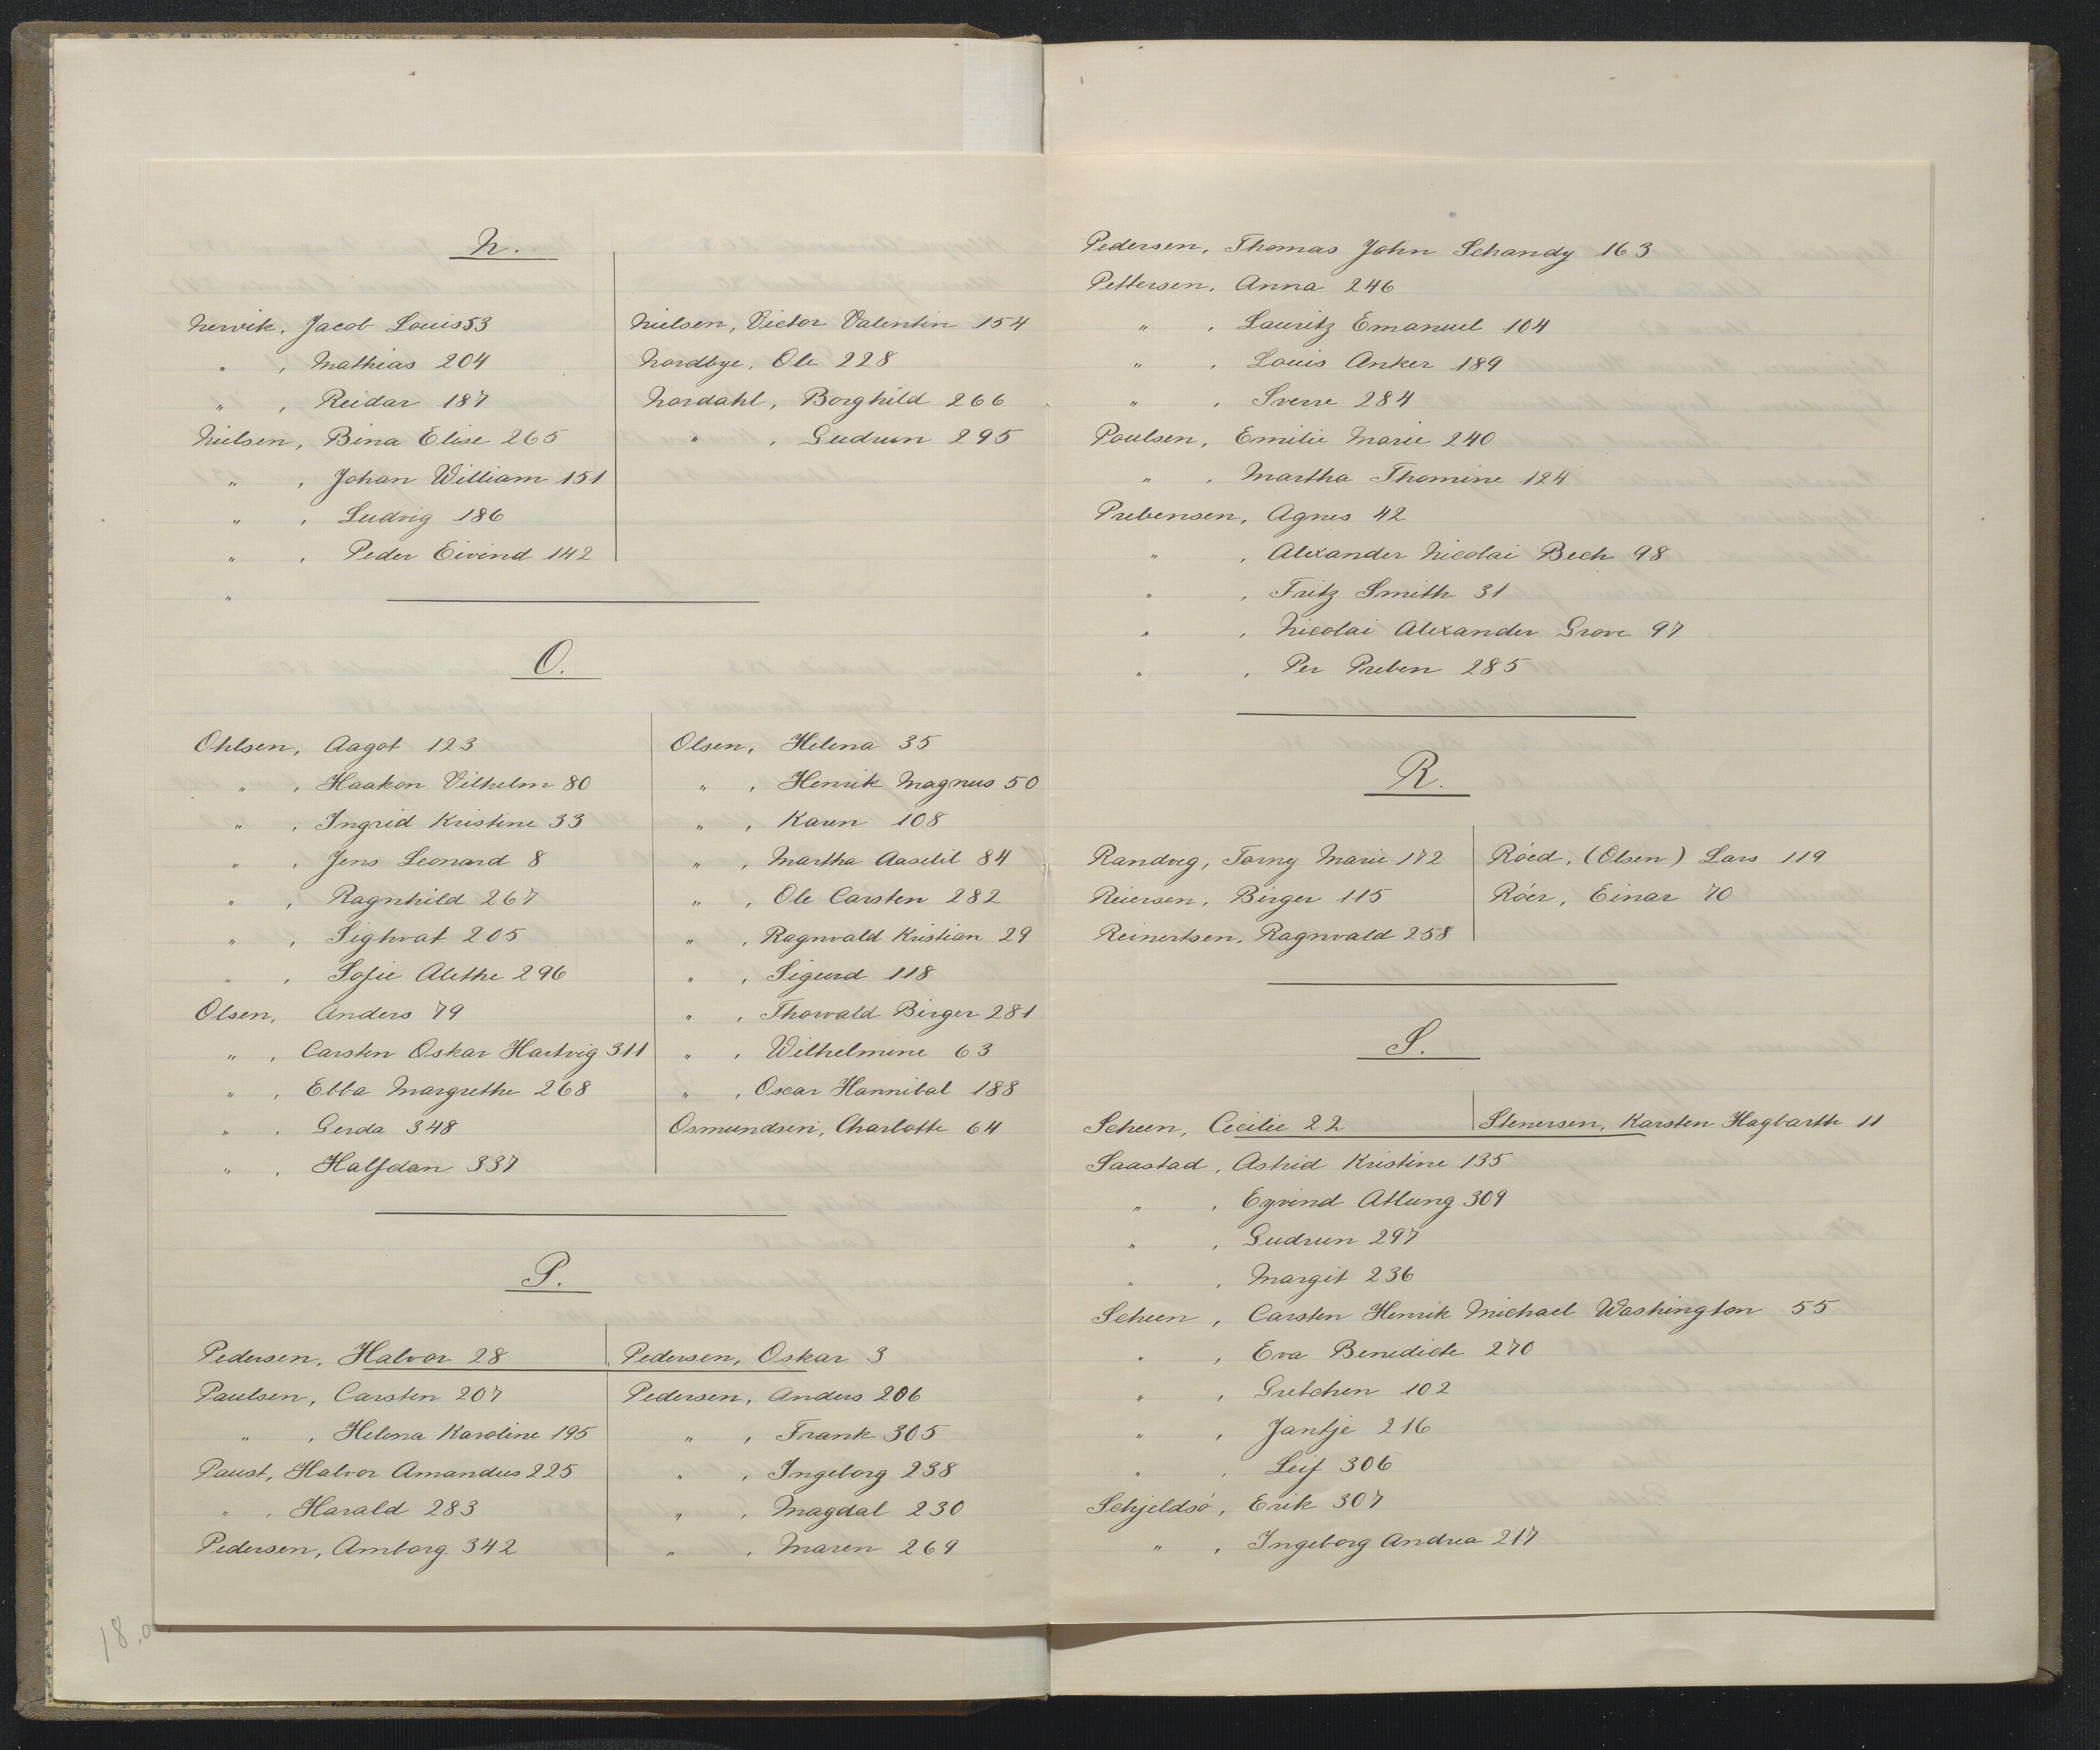 N.
Nervik, Jacob Louis 53
" , Mathias 204
" , Reidar 187
Nielsen, Bina Elise 265
" , Johan William 151
" , Ludvig 186
" , Peder Eivind 142
"
Nielsen, Victor Valentin 154
Nordbye, Ole 228
Nordahl, Borghild 266
" , Gudrun 295
O.
Ohlsen, Aagot 123
" , Haakon Vilhelm 80
" , Ingrid Kristine 33
" , Jens Leonard 8
" , Ragnhild 267
" , Sighvat 205
" , Sofie Alethe 296
Olsen, Anders 79
" , Carsten Oskar Hartvig 311
" , Ebba Margrethe 268
" , Gerda 348
" , Halfdan 337
Olsen, Helena 35
" , Henrik Magnus 50
" , Karen 108
" , Martha Aaselil 84
" , Ole Carsten 282
" , Ragnvald Kristian 29
" , Sigurd 118
" , Thorvald Birger 281
" , Wilhelmine 63
" , Oscar Hannibal 188
Osmundsen, Charlotte 64
P.
Pedersen, Halvor 28
Pedersen, Oskar 3
Paulsen, Carsten 207
" , Helena Karoline 195
Paust, Halvor Amandus 225
" , Harald 283
Pedersen, Amborg 342
Pedersen, Anders 206
" , Frank 305
" , Ingeborg 238
" , Magdal 230
" , Maren 269
18.
Pedersen, Thomas John Schandy 163
Pettersen, Anna 246
" , Lauritz Emanuel 104
" , Louis Anker 189
" , Sverre 284
Poulsen, Emilie Marie 240
" , Martha Thomine 124
Prebensen, Agnes 42
" , Alexander Nicolai Bech 98
" , Fritz Smith 31
" , Nicolai Alexander Grove 97
" , Per Preben 285
R.
Randvig, Torny Marie 172
Reiersen, Birger 115
Reinertsen, Ragnvald 258
Róed, (Olsen) Lars 119
Róer, Einar 70
S.
Scheen, Cecilie 22
Stenersen, Karsten Hagbarth 11
Saastad, Astrid Kristine 135
" , Eyvind Atlung 309
" , Gudrun 297
" , Margit 236
Scheen, Carsten Henrik Michael Washington 55
" , Eva Benedicte 270
" , Gretchen 102
" , Jantje 216
" , Leif 306
Schjeldsó, Erik 307
" , Ingeborg Andrea 217